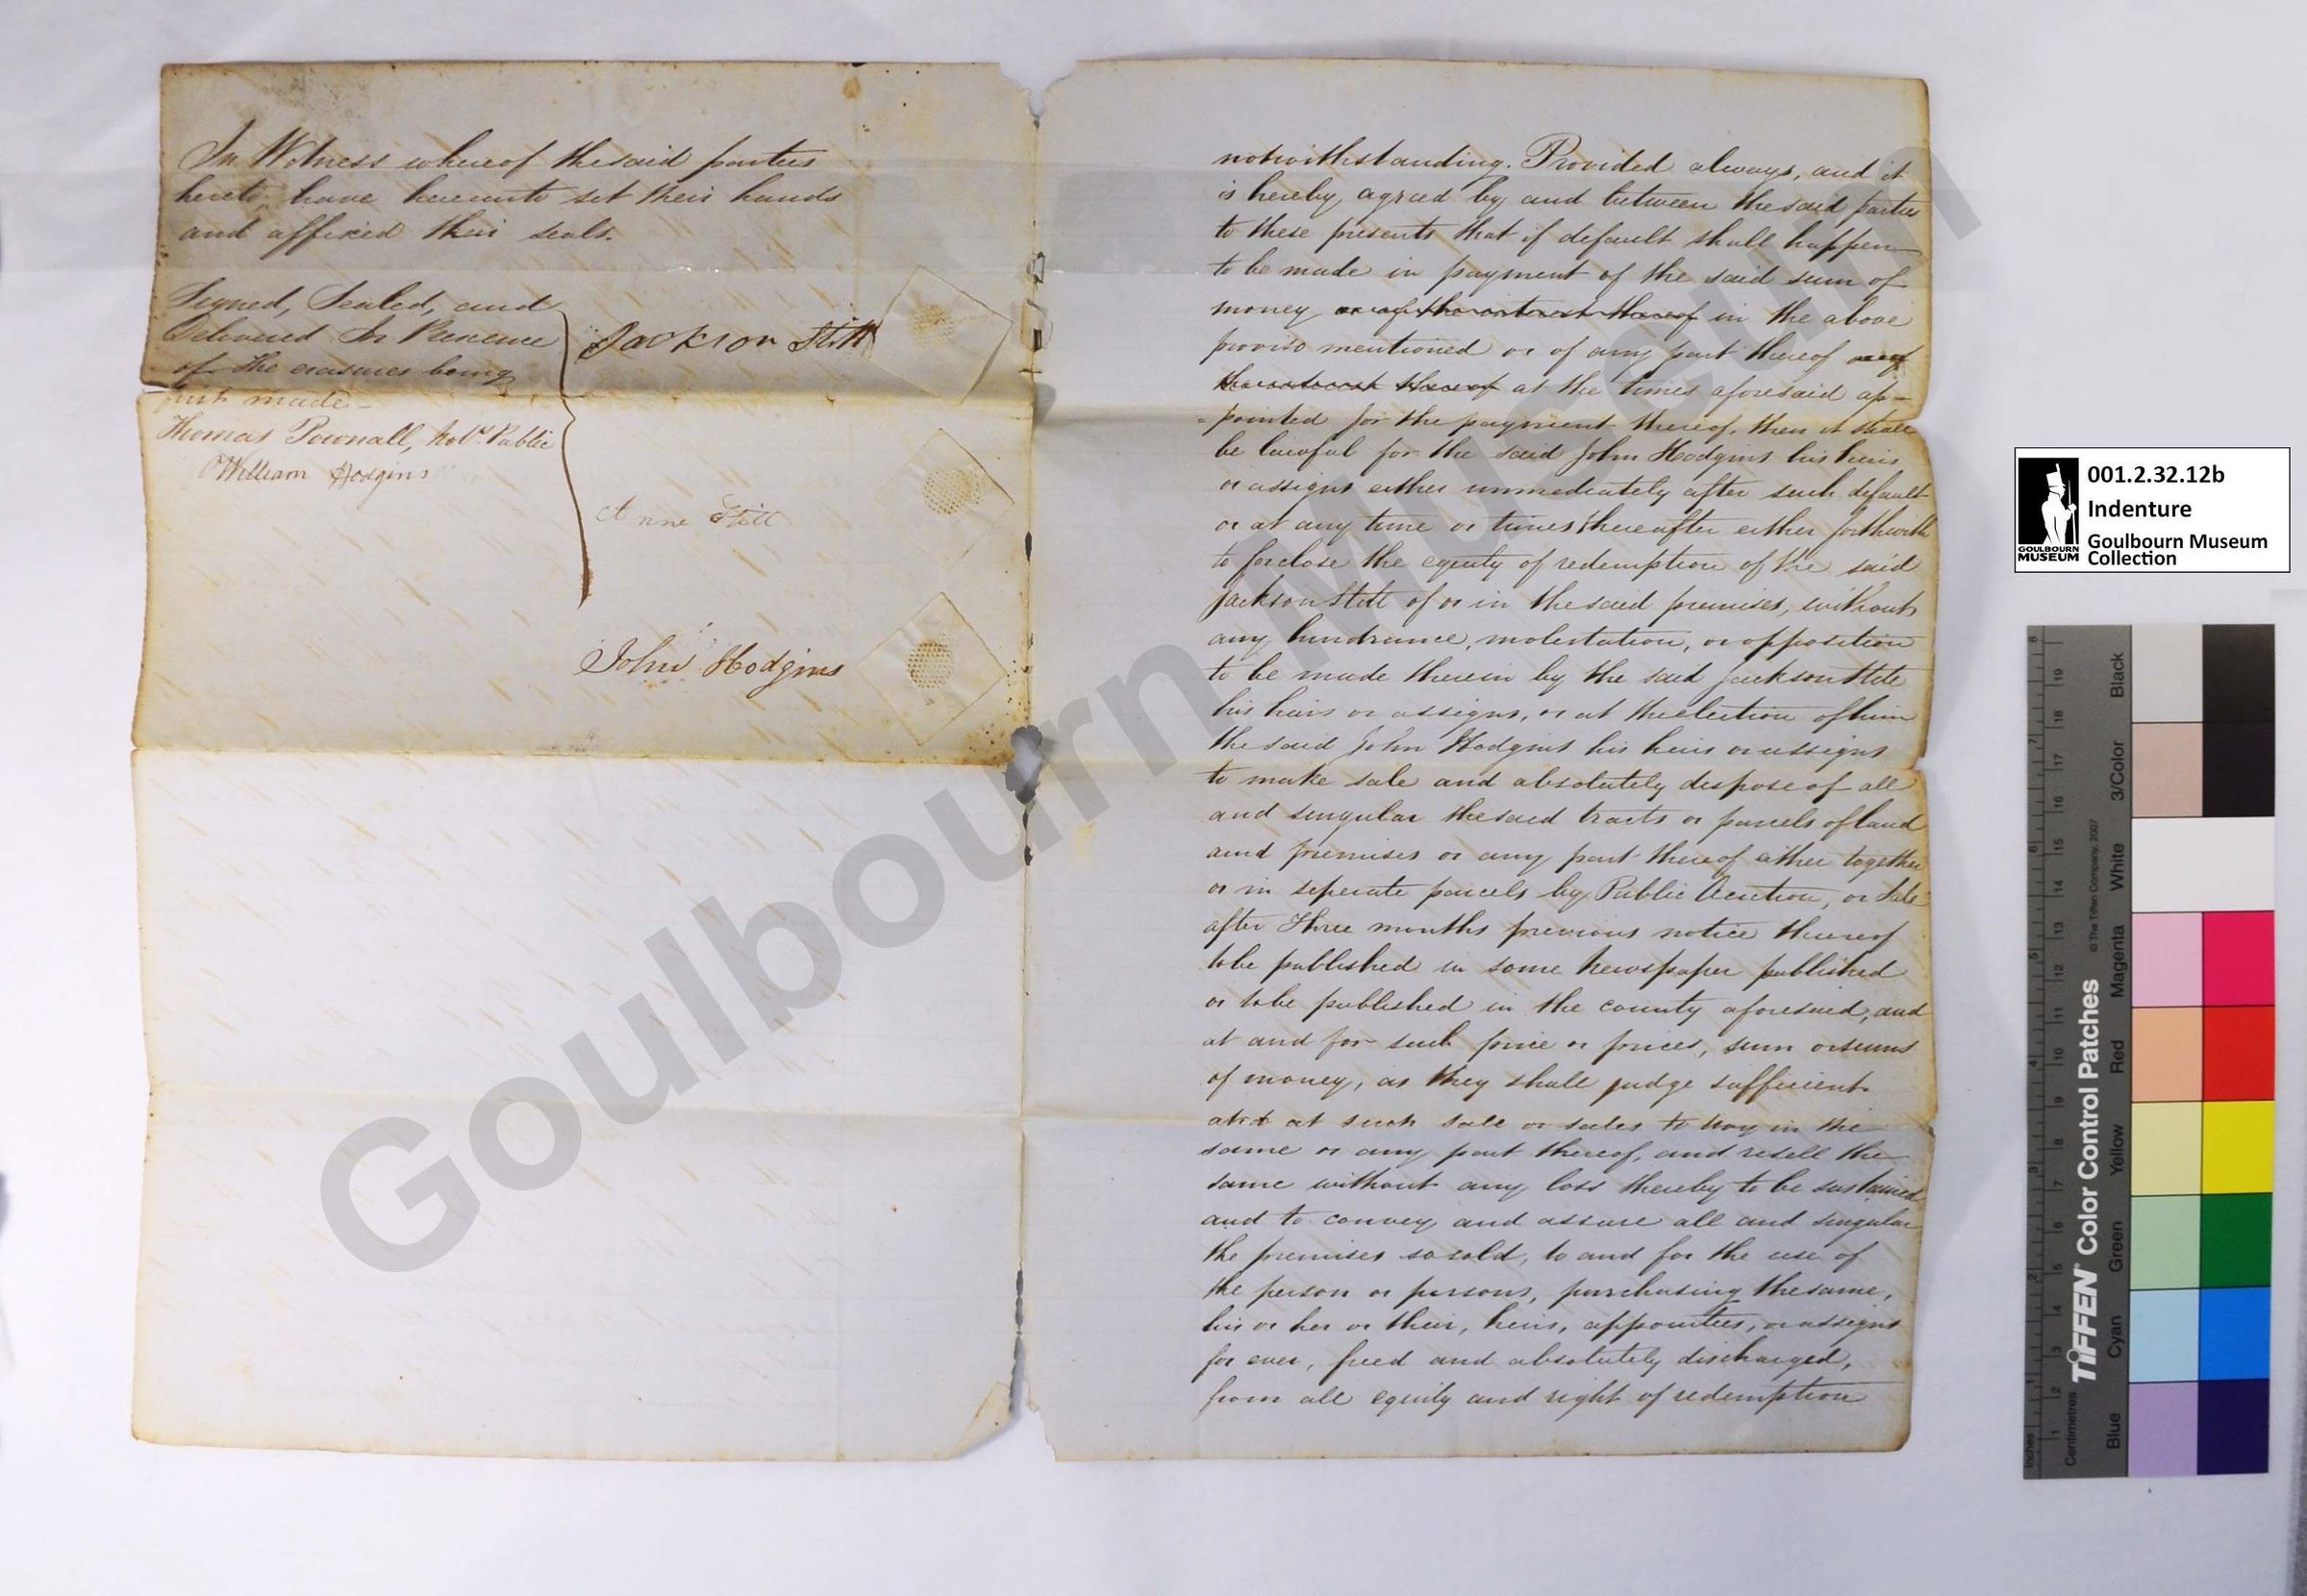 In Witness whereof the said parties
hereto, have hereunto set their hands
and affixed their seals.
Signed, Sealed, and
Delivered In Presence
of the erasures being
first made-
Thomas Pownall, Not. Public
William Hodgins
Jackson Stitt
Anne Stitt
John Hodgins
notwithstanding. Provided always, and it
is hereby agreed by and between the said parties
to these presents that if default shall happen
to be made in payment of the said sum of
money or of the interest thereof in the above
proviso mentioned or of any part thereof or of
the interest thereof at the times aforesaid ap-
-pointed for the payment thereof, then it shall
be lawful for the said John Hodgins his heirs
or assigns either immediately after such default
or at any time or times thereafter either forthwith
to forclose the equity of redemption of the said
Jackson Stitt of or in the said premises, without
any hundrance, molestation, or opposition
to be made therein by the said Jackson Stitt
his heirs or assigns, or at the election of him
the said John Hodgins his heirs or assigns
to make sale and absolutely dispose of all
and singular the said tracts or parcels of land
and premises or any part thereof either together
or in seperate parcels by Public Auction, or Sale
after Three months previous notice thereof
to be published in some Newspaper published
or to be published in the county aforesaid, and
at and for such price or prices, sum or sums
of money, as they shall judge sufficient.
and at such sale or sales to buy in the
same or any part thereof, and resell the
same without any loss thereby to be sustained
and to convey and assure all and singular
the premises so sold, to and for the use of
the person or persons, purchasing the same,
his or her or their, heirs, appointees, or assigns
for ever, freed and absolutely discharged,
from all equity and right of redemption
Goulbourn Museum
001.2.32.12b
Indenture
Goulbourn Museum
Collection
GOULBOURN
MUSEUM
TIFFEN Color Control Patches
© The Tiffen Company, 2007
Inches
Centimetres
Blue
Cyan
Green
Yellow
Red
Magenta
White
3/Color
Black